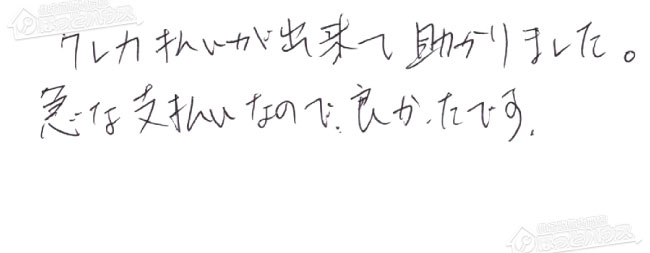 クレカ払いが出来て助かりました。
急な支払いなので、良かったです。